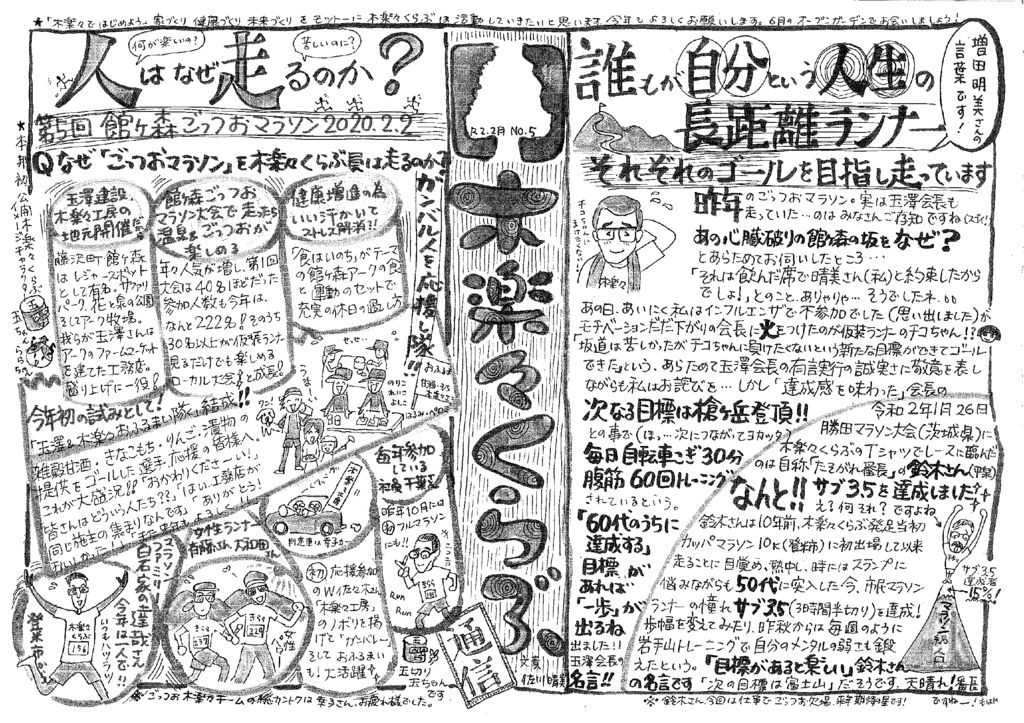 ★「木楽々ではじめよう。家づくり 健康づくり 未来づくり をモットーに 木楽々くらぶ は 活動していきたいと思います。今年もよろしくお願いします。6月のオープンガーデンでお会いしましょう!
何が楽しいの?
苦しいのに?
人はなぜ走るのか?
第5回 館ヶ森ごっつおマラソン2020.2.2
Qなぜ「ごっつおマラソン」を木楽々くらぶ員は走るのか?
玉澤建設
木楽々工房の
地元開催
藤沢町館ヶ森
はレジャースポット
として有名。サファリ
パーク、花と泉の公園
そしてアーク牧場。
我らが玉澤さんは
アークのファームマーケット
を建てた工務店。
盛り上げに一役!
館ヶ森ごっつお
マラソン大会で走ったら
温泉とごっつおが
楽しめる
年々人気が増し、第1回
大会は40名ほどだった
参加人数も今年は、
なんと222名!そのうち
30名以上が仮装ランナー
見るだけでも楽しめる
ローカル大会へと成長!
健康増進の為
いい汗かいて
ストレス解消!!
「食はいのち」がテーマ
の館ヶ森アークの食
と運動のセットで
充実の休日の過し方
ガンバル人を応援し隊!!
今年初の試みとして!
「玉澤&木楽々おふるまい隊」結成!!
雑穀甘酒・きなこもち・りんご・漬物の
提供をゴールした選手、応援の皆様へ。
これが大盛況!!「おかわりくださーい!」
皆さんはどういう人たち??」「はい、工務店が
同じ施主の集まりなんです」ありがとう!
毎年参加
している
社長 千葉さん
昨年10月には
フルマラソン
にも!!
Run
Run
女性ランナー
マラソン
ファミリー
白石家の達哉さん
今年は一人で!!
いつもハツラツ
登米市から
木楽々くらぶ
156
初 応援参加
のW佐々木さん
「木楽々工房」
のノボリを掲
げて「ガンバレー」
そしておふるまい
も!大活躍
玉切り
玉ちゃん
です
※ごっつお木楽々チームの総カントクは幸子さん、お疲れ様でした。
R2.2月 No.5
木楽々くらぶ
通信
文責
佐川晴美
増田明美さんの
言葉です!
誰もが自分という人生の
長距離ランナー
それぞれのゴールを目指し走っています
昨年のごっつおマラソン。実は玉澤会長も
走っていた…のはみなさんご存知ですね
あの心臓破りの館ヶ森の坂をなぜ?
とあらためてお伺いしたところ…
「それは飲んだ席で晴美さん(私)と約束したから
でしょ!」とのこと、ありゃりゃ… そうでしたネ。。
あの日、あいにく私はインフルエンザで不参加でした(思い出しました)が
モチベーションだだ下がりの会長に火をつけたのが仮装ランナーのチコちゃん!?
「坂道は苦しかったがチコちゃんに負けたくないという新たな目標ができてゴール
できた」という、あらためて玉澤会長の有言実行の誠実さに敬意を表し
ながらも私はお詫びを… しかし「達成感を味わった」会長の
次なる目標は槍ヶ岳登頂!!
との事で(は、…次につながってヨカッタ)
毎日自転車こぎ30分
腹筋60回トレーニング
されているという。
「60代のうちに
達成する」
目標が
あれば
「一歩」が
出るね
玉澤会長の
名言!!
木楽々
令和2年1月26日
勝田マラソン大会(茨城県)に
木楽々くらぶのTシャツでレースに臨んだ
のは自称「たそがれ番長」の鈴木さん
なんと!! サブ3.5を達成しました
え?何それ?ですよね
鈴木さんは10年前、木楽々くらぶ発足当初
カッパマラソン10K(登米市)に初出場して以来
走ることに目覚め、熱中し、時にはスランプに
悩みながらも50代に突入した今、市民マラソン
ランナーの憧れサブ3.5(3時間半切り)を達成!
歩幅を変えてみたり、昨秋からは毎週のように
岩手山トレーニングで自分のメンタルの弱さも鍛
えたという。「目標があると楽しい」鈴木さん
の名言です「次の目標は富士山」だそうです。天晴れ!番長
サブ3.5
達成者
15%!
マラソン総人口
※鈴木さん、今回は仕事でごっつお欠場、来年期待です!